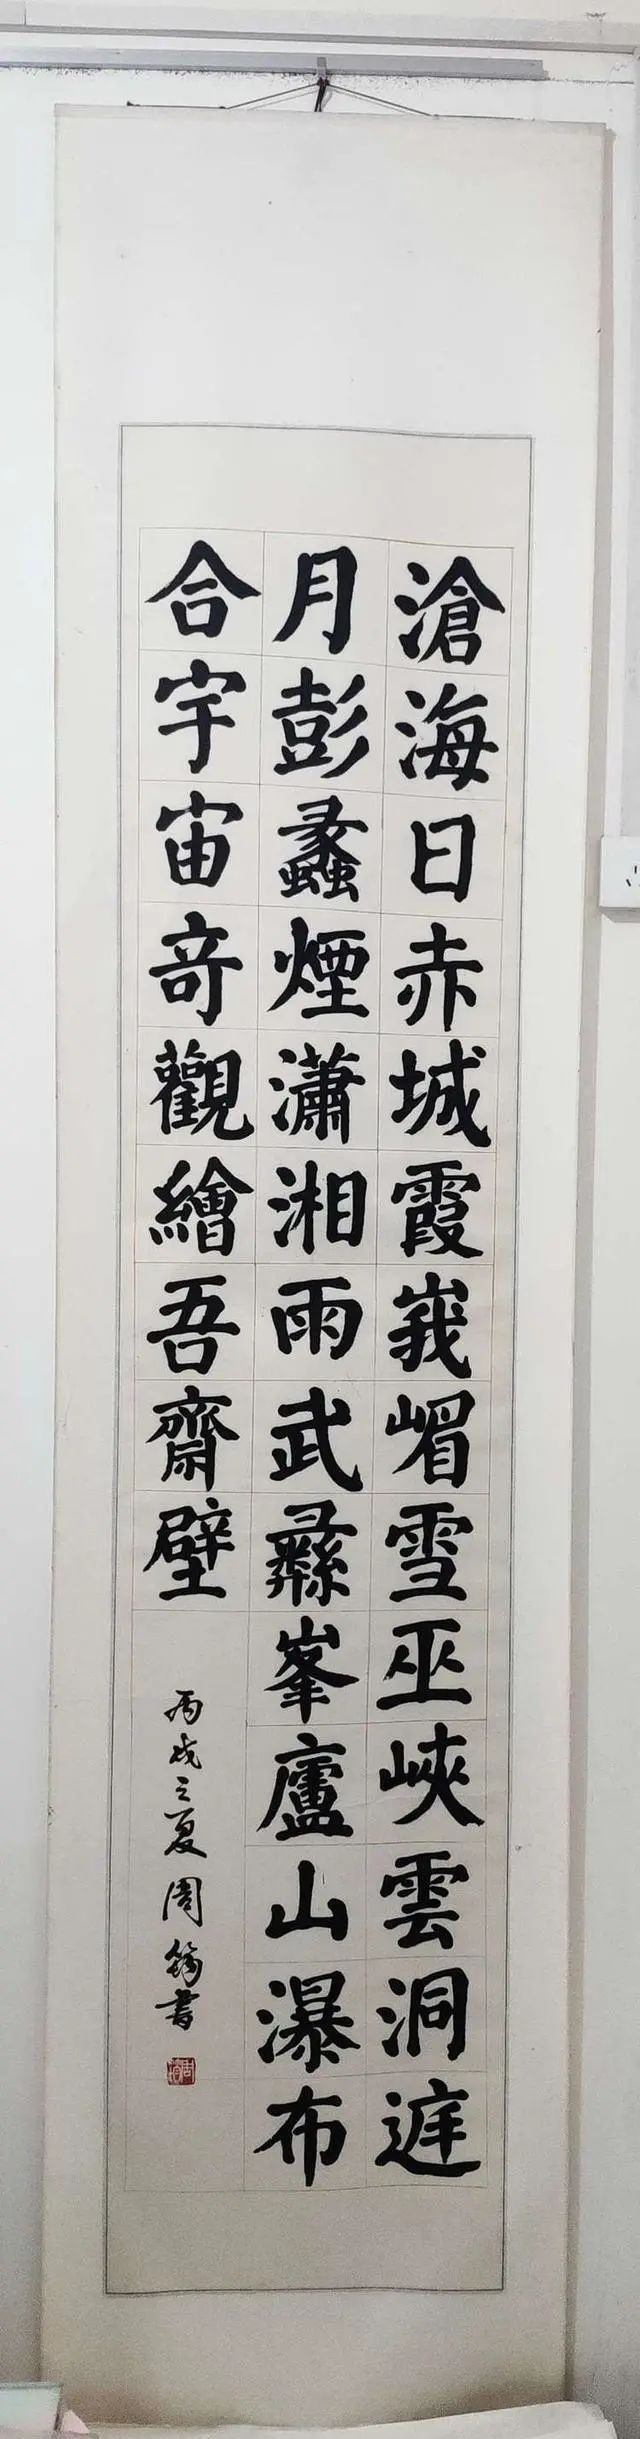 滄海日赤城霞峩嵋雪巫峽雲洞庭
月彭蠡煙瀟湘雨武彝峯廬山瀑布
合宇宙奇觀繪吾齋壁
丙戌之夏周筠書